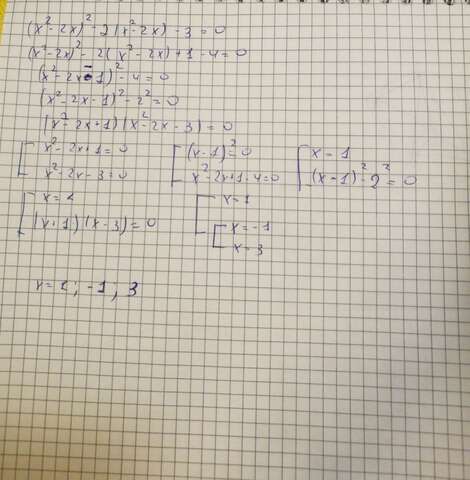 (x²-2x)²-2(x²-2x)-3=0
(x²-2x)²-2(x²-2x)+1-4=0
(x²-2x-1)²-4=0
(x²-2x-1)²-2²=0
(x²-2x+1)(x²-2x-3)=0
[ x²-2x+1=0 [ (x-1)²=0 [ x=1
x²-2x-3=0 x²-2x+1-4=0 (x-1)²-2²=0
[ x=1 [ x=1
(x+1)(x-3)=0 [ x=-1
x=3
x=1; -1; 3